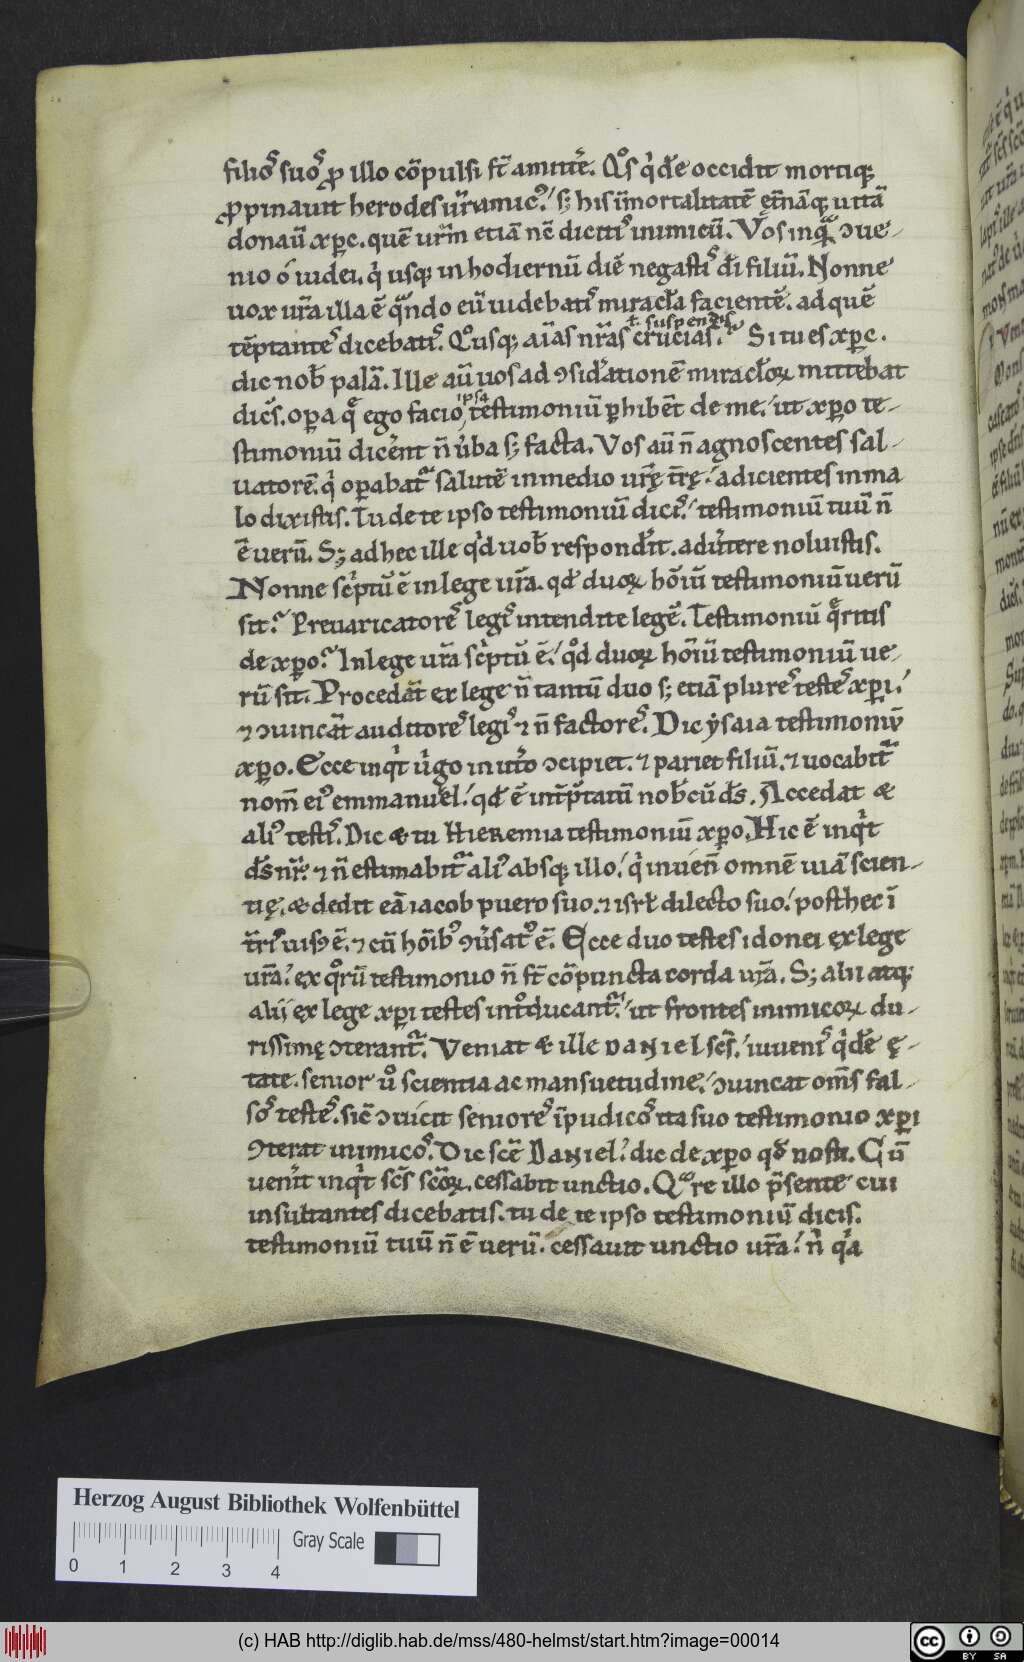 filiꝯ suꝯ ꝓ illo cōpulsi st̄ amittˀe. Qͦs qͥdē occidit mortiqꝫ
ꝓpinauit herodes ur̄ amicꝰ. sꝫ his īmortalitatē et̄nāqꝫ uitā
donauit xp̄c. quē ur̄m etiā nc̄ dicitis inimicū. Vos inqͣ ꝯue-
nio ó iudei. qͥ usqꝫ in hodiernū diē negastis dī filiū. Nonne
uox ur̄a illa ē qn̄do eū uidebatis miracl̄a facientē. ad quē
tēptantes dicebatis. Qͦusqꝫ aīas nr̄as crucias. ł suspendis Si tu es xp̄c.
dic nob̄ palā. Ille aū uos ad ꝯsidˀationē miracl̄oꝝ mittebat
dicēs. opa q̄ ego facio, ipsa testimoniū ꝑhibēt de me. ut xp̄o te-
stimoniū dicˀent n̄ uˀba sꝫ facta. Vos aū n̄ agnoscentes sal-
uatorē. qͥ opabatͬ salutē in medio ur̄ę tr̄ę. adicientes in ma
lo dixistis. Tu de te ipso testimoniū dicis. testimoniū tuū n̄
ē uerū. Sꝫ ad hec ille qd̄ uob̄ respondˀit. aduˀtere noluistis.
Nonne scͥptū ē in lege ur̄a. qd̄ duoꝝ hōiū testimoniū uerū
sit. Preuaricatores legis intendite legē. Testimoniū q̄ritis
de xp̄o. In lege ur̄a scͥptū ē. qd̄ duoꝝ hōiū testimoniū ue-
rū sit. Procedāt ex lege n̄ tantū duo sꝫ etiā plures testes xp̄i.
⁊ ꝯuincāt auditores legis ⁊ n̄ factores. Dic ẏsaia testimoniū
xp̄o. Ecce inqͥt uˀgo in utˀo ꝯcipiet. ⁊ pariet filiū. ⁊ uocabitͬ
nom̄ eiꝰ emmanuel. qd̄ ē int̄ptatū nob̄cū ds̄. Accedat &
aliꝰ testis. Dic & tu Hieremia testimoniū xp̄o. Hic ē inqͥt
ds̄ nr̄. ⁊ n̄ estimabitͬ aliꝰ absqꝫ illo. qͥ inuen̄ omnē uiā scien-
tię. & dedit eā iacob puero suo. ⁊ isrł dilecto suo. post hec ī
tr̄is uisꝰ ē. ⁊ cū hōibꝰ ꝯuˀsatꝰ ē. Ecce duo testes idonei ex lege
ur̄a. ex qͦrū testimonio n̄ st̄ cōpuncta corda ur̄a. Sꝫ alii atqꝫ
alij ex lege xp̄i testes intͦducantͬ. ut frontes inimicoꝝ du-
rissimę ꝯterantͬ. Veniat & ille Daniel scs̄. iuuenis qͥdē ę-
tate. senior uͦ scientia ac mansuetudine. ꝯuincat om̄s fal-
sos testes. sic̄ ꝯuicit seniores īpudicos ita suo testimonio xp̄i
ꝯterat inimicos. Dic sc̄e Daniel. dic de xp̄o qd̄ nosti. Cū
uenˀit inqͥt scs̄ scōꝝ. cessabit unctio. Qͣre illo p̄sente cui
insultantes dicebatis. tu de te ipso testimoniū dicis.
testimoniū tuū n̄ ē uerū. cessauit unctio ur̄a. n̄ qͥa
Herzog August Bibliothek Wolfenbüttel
Gray Scale
0 1 2 3 4
(c) HAB http://diglib.hab.de/mss/480-helmst/start.htm?image=00014
cc BY SA